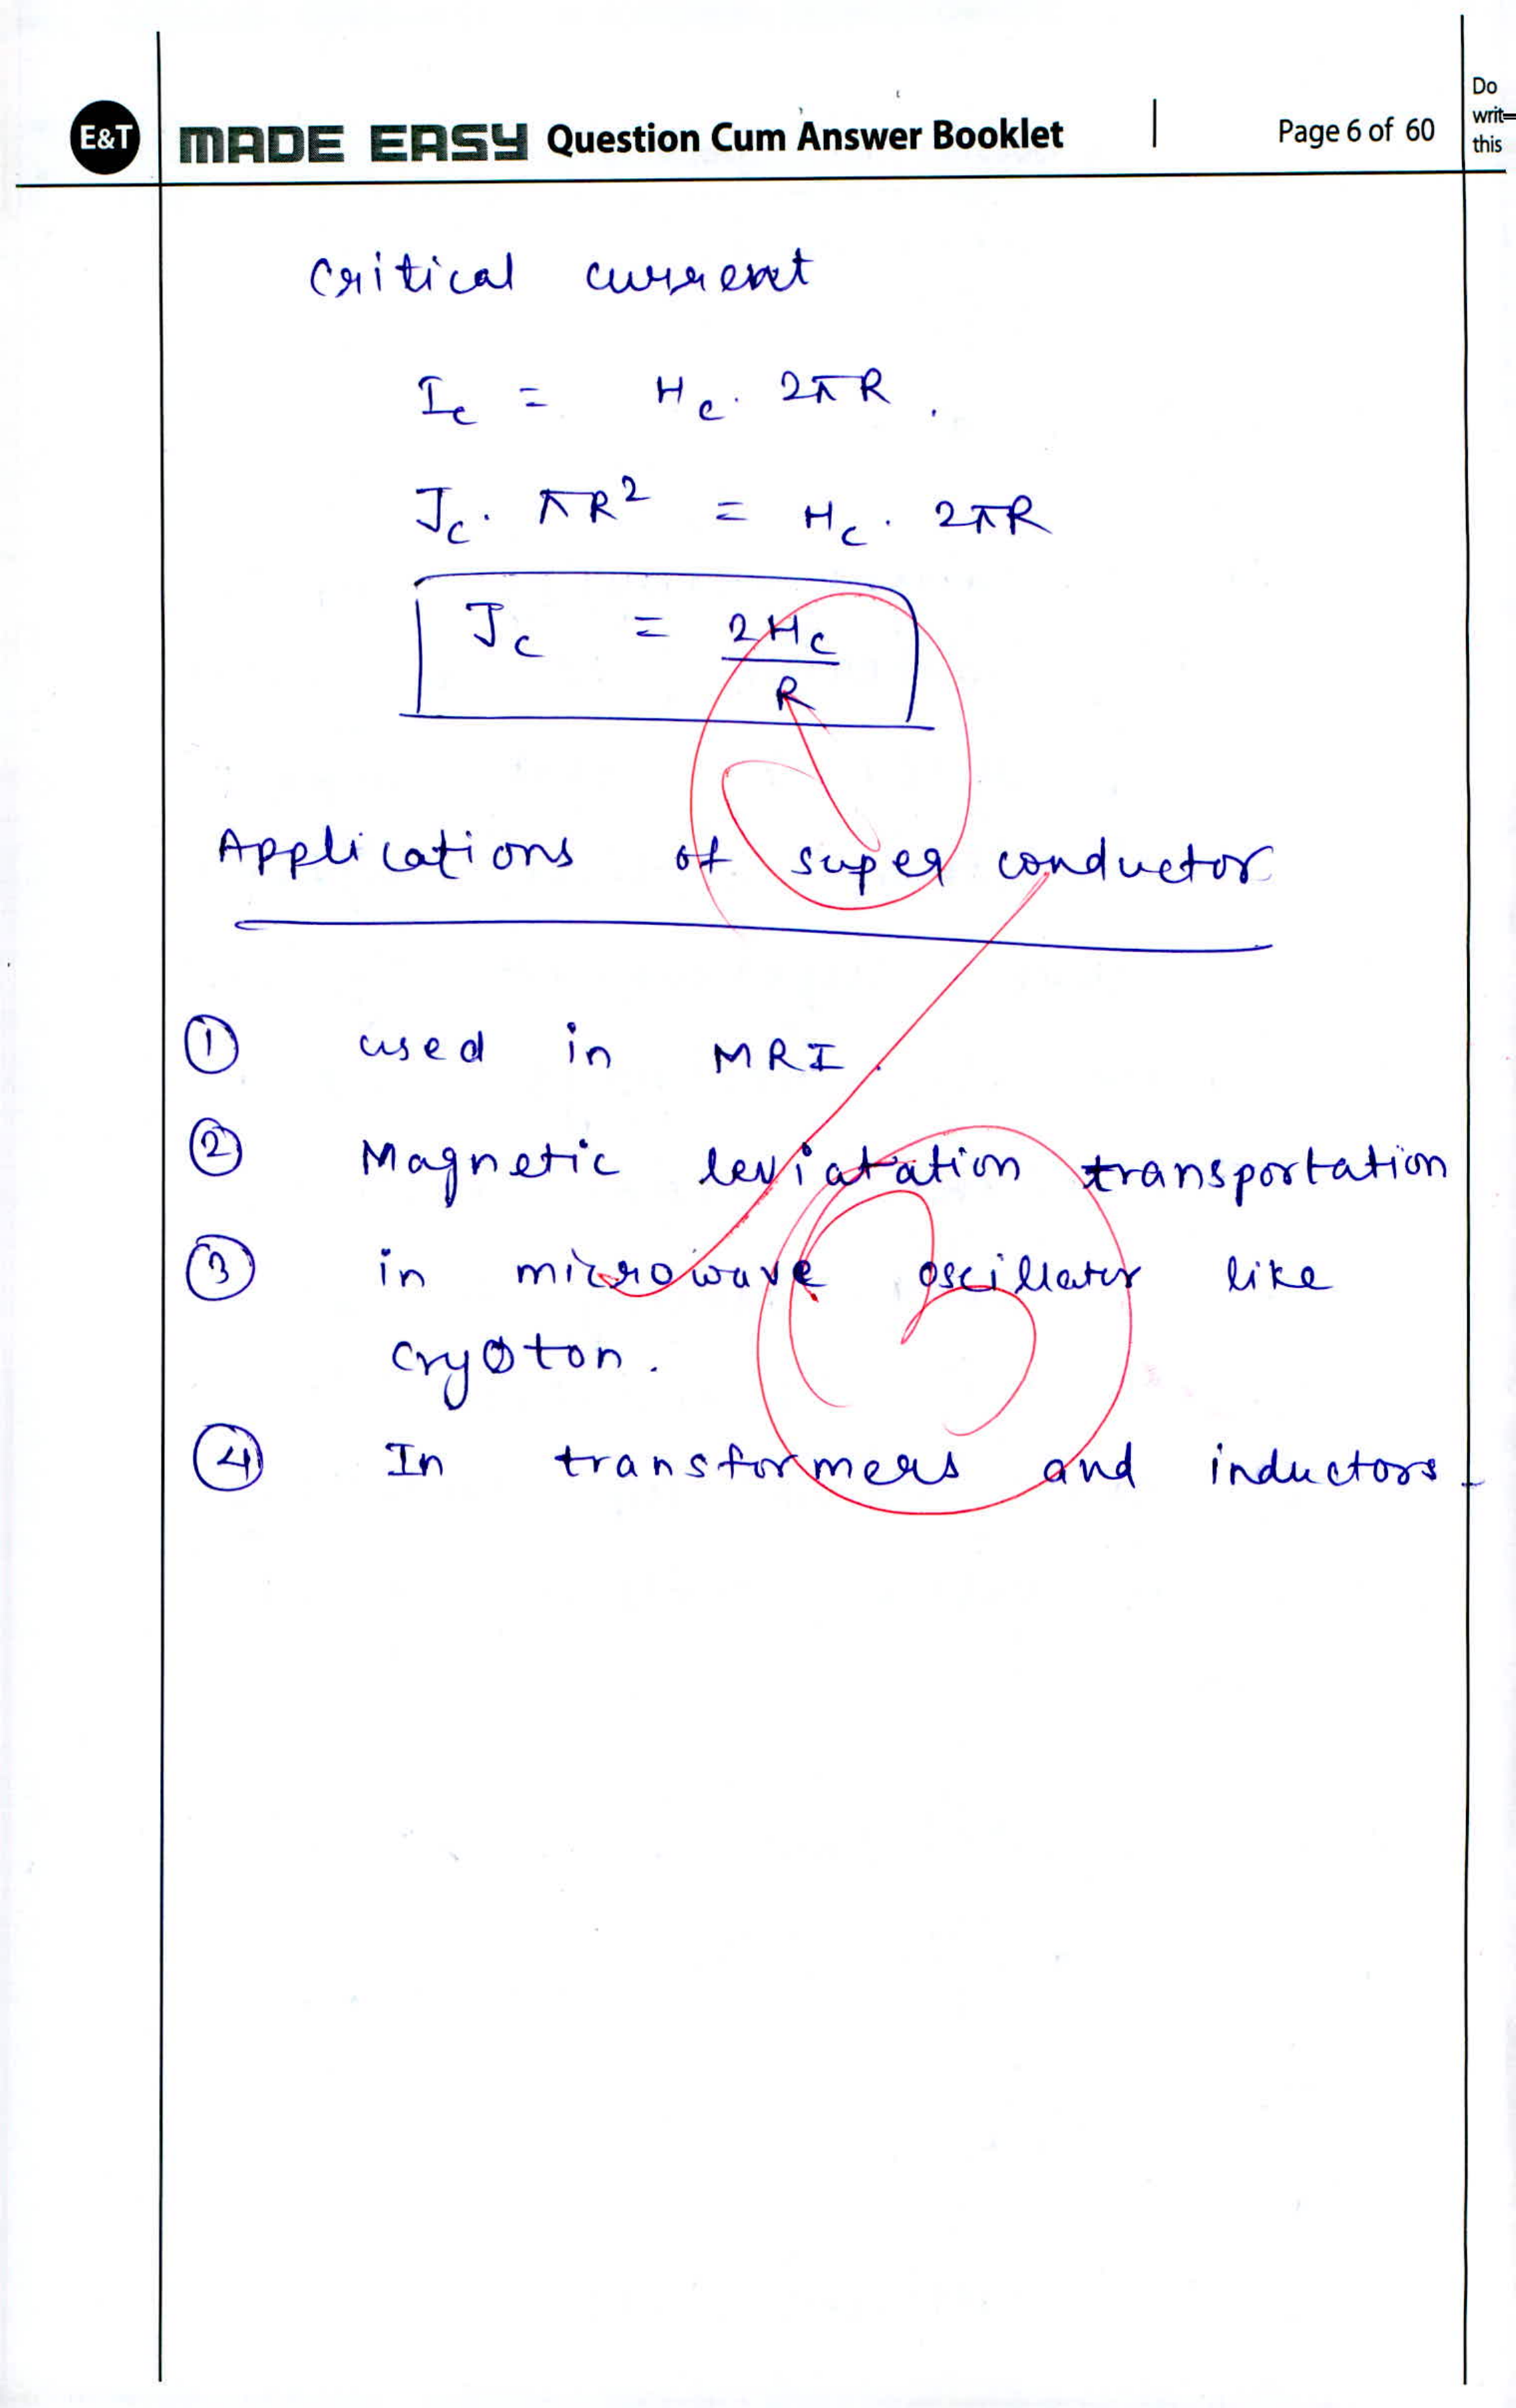 E&T MADE EASY Question Cum Answer Booklet | Page 6 of 60
Do
this
Critical current
I_c = H_c · 2πR .
J_c · πR² = H_c · 2πR
J_c = 2H_c / R
Applications of super conductor
① used in MRI.
② Magnetic leviatation transportation
③ in microwave oscillator like
cryoton.
④ In transformers and inductors